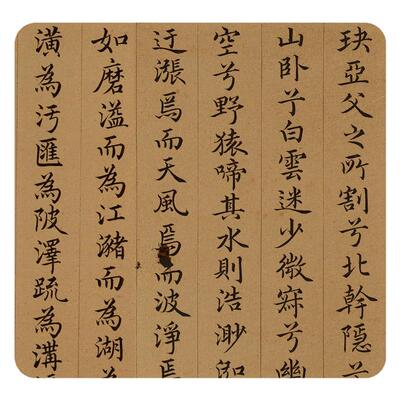 玦亞父之所割兮北幹隱兮
山卧兮白雲迷少微寂兮幽
空兮野猿啼其水則浩渺泓
迂漲焉而天風焉而波淨焉
如磨溢而為江瀦而為湖
潢為污匯為陂澤疏為溝